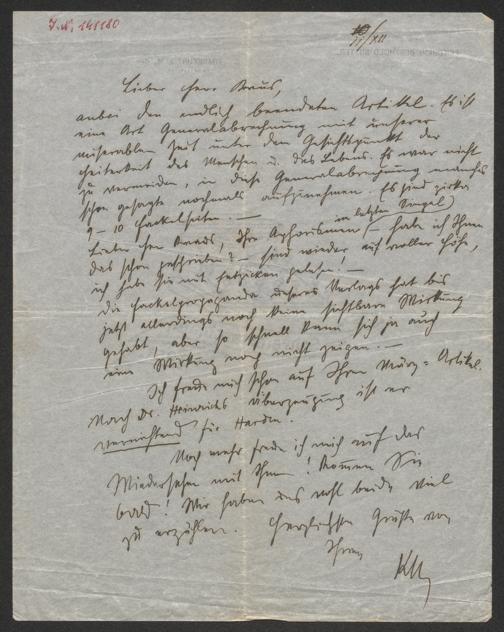 J. N. 141180
11/XII
Lieber Herr Kraus,
anbei den endlich beendeten Artikel. Es ist
eine Art Generalabrechnung mit unserer
miserablen Zeit unter dem Gesichtspunkt der
Heiterkeit des Menschen u. des Lebens. Es war nicht
zu vermeiden, in diese Generalabrechnung manches
schon gesagte nochmals aufzunehmen. Es sind zirka
9–10 Fackelseiten. —
im letzten
Lieber Herr Kraus, Ihre Aphorismen – habe ich Ihnen
das schon geschrieben? – sind wieder auf voller Höhe,
ich habe sie mit Entzücken gelesen. —
Die Fackelpropaganda unseres Verlags hat bis
jetzt allerdings noch keine sichtbare Wirkung
gehabt, aber so schnell kann sich ja auch
eine Wirkung noch nicht zeigen. —
Ich freue mich schon auf Ihren Artikel.
Nach Dr. Heinrichs Überzeugung ist er
vernichtend für Harden.
Noch mehr freue ich mich auf das
Wiedersehen mit Ihnen! Kommen Sie
bald! Wir haben uns wohl beide viel
zu erzählen. Herzlichste Grüße von
Ihrem